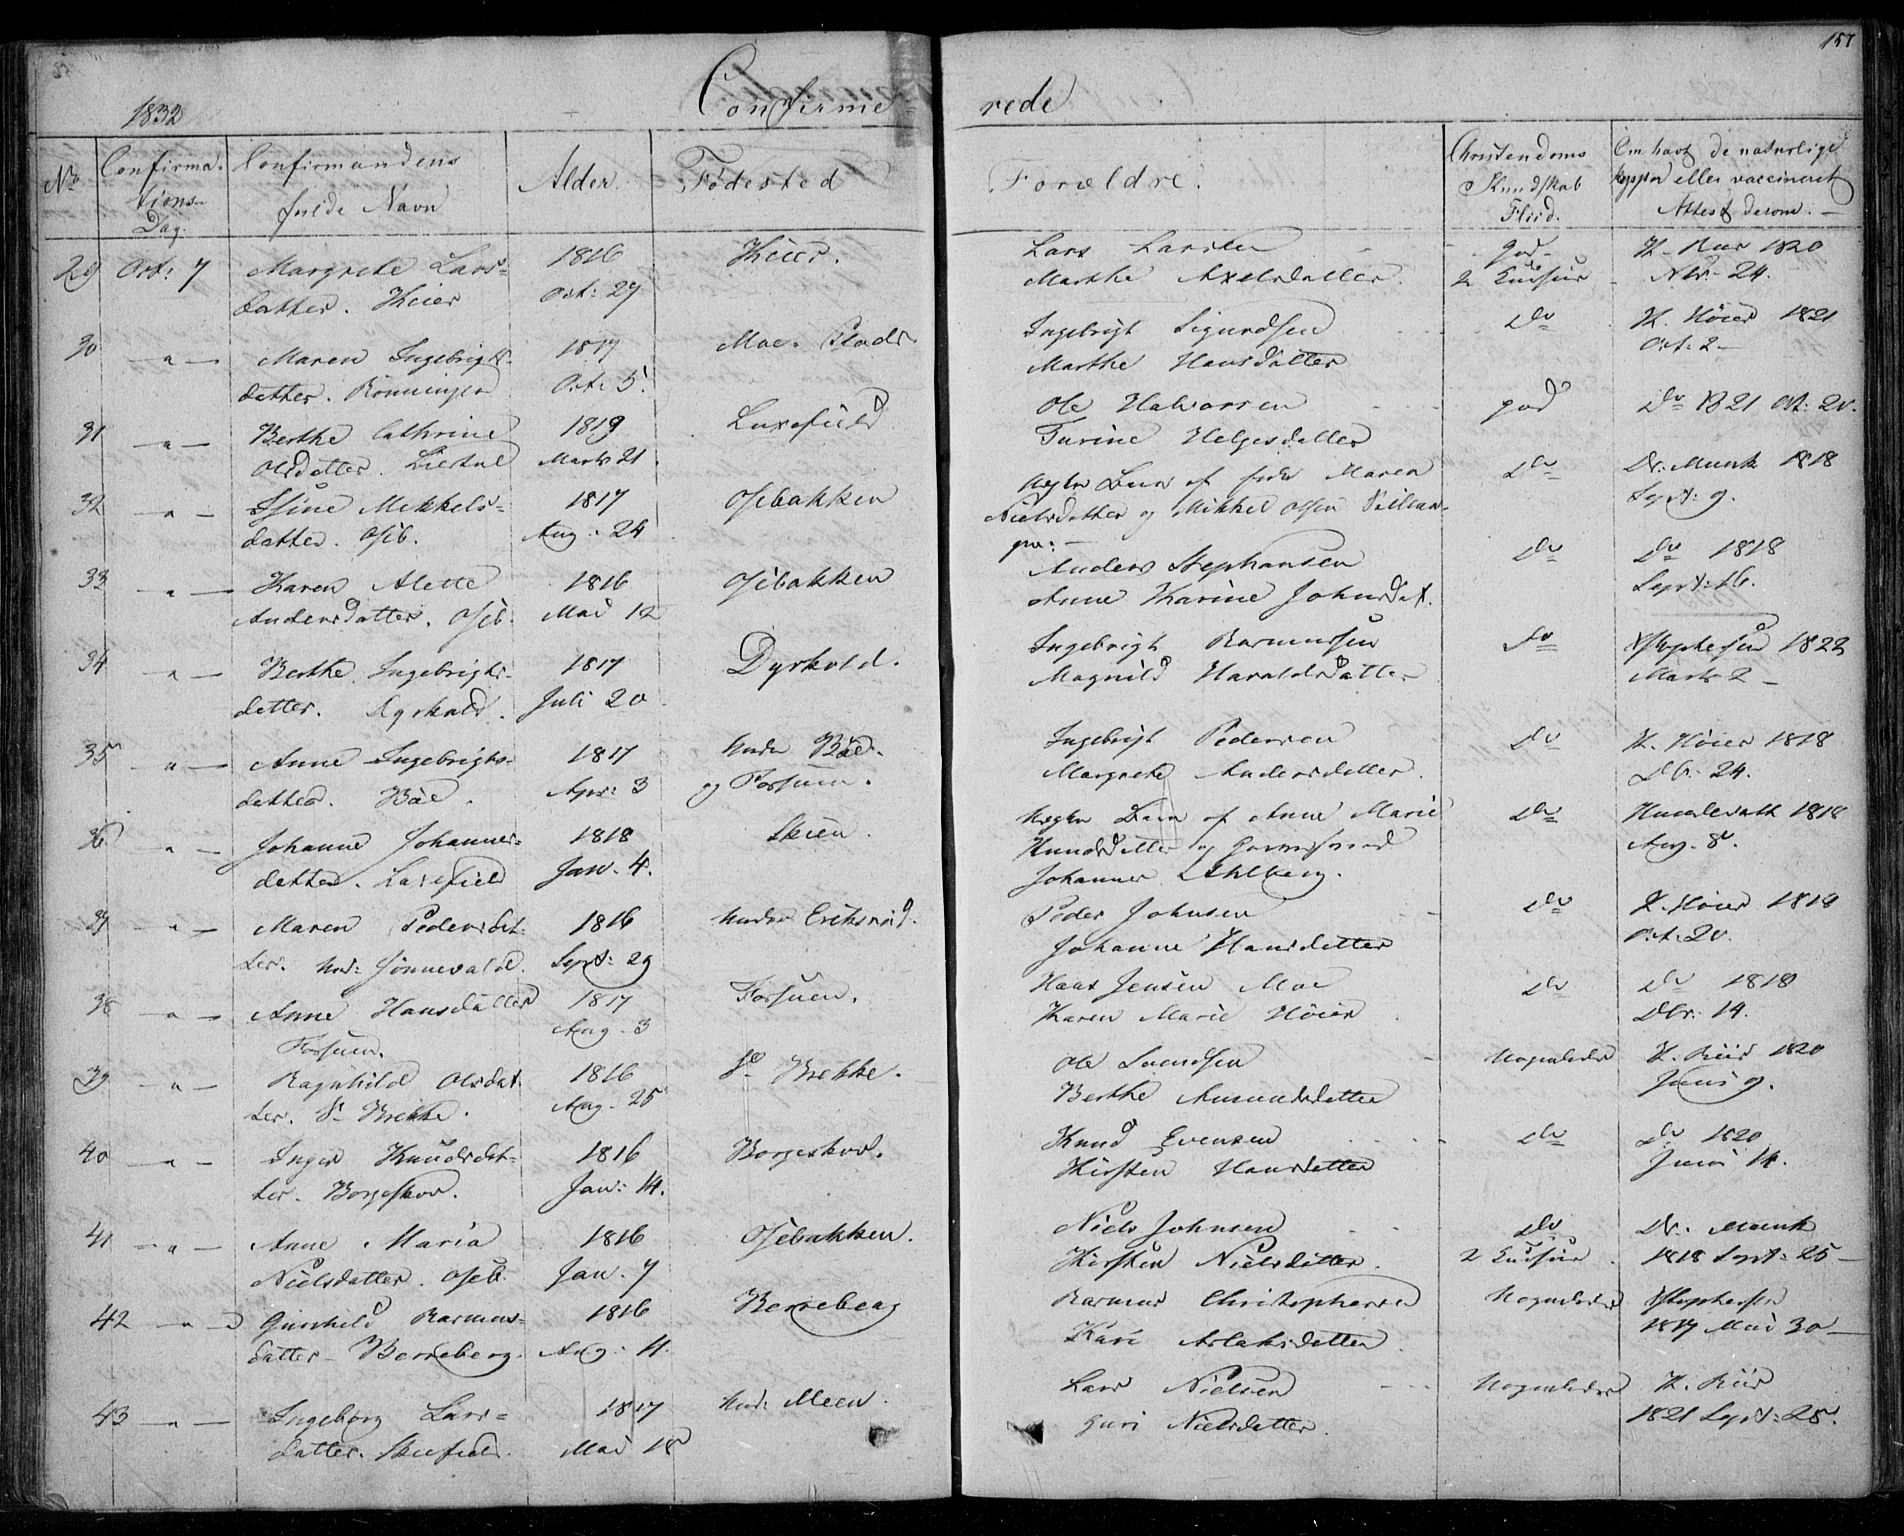 157
1832
Confirme= rede
No
Confirma-
tions-
Dag.
Confirmandens
fulde Navn
Alder.
Födested
Forældre.
Christendoms
Kundskab
Fliid.
Om havt de naturlige
kopper eller vaccineret
Attest derom. —
29 Oct: 7 Margrethe Lars= 1816 Keier. Lars Larsen god- K. 1820
datter. Keier Oct: 27 Marthe Axelsdatter. 2 Nbr. 24.
30 — " — Maren Ingebrigts- 1817 Moe. Plads Ingebrigt Sigurdsen Do K. Höier 1821
datter. Rönningen Oct: 5. Marthe Hansdatter Oct: 2 —
31 — " — Berthe Cathrine 1819 Laxefield Ole Halvorsen god Do 1821 Oct: 20.
Olsdatter. Marts 21 Turine Helgesdatter
32 — " — Mekkels= 1817 Osebakken Barn af Maren Do Dr. Munk 1818
datter. Oseb. Aug: 24 Nielsdatter og Mikkel Olsen Sept: 9.
33 — " — Karen Alette 1816 Osebakken Anders Stephansen Do Do 1818
Andersdatter. Oseb. Mai 12 Anne Karine Johnsdat. Sept: 16.
34 — " — Berthe Ingebrigts- 1817 Dyrkold. Ingebrigt Rasmussen Do 1822
datter. Dyrkold. Juli 20 Magnild Haraldsdatter Marts 2 —
35 — " — Anne Ingebrigts- 1817 Under Böe. Ingebrigt Pedersen Do K. Höier 1818
datter. Böe. Apr: 3 og Fossum. Margrete Andersdatter. Dbr. 24.
36 — " — Johanne Johannes- 1818 Skien. Barn af Anne Marie Do 1818
datter. Laxefield Jan. 4. Knudsdatter og Aug. 8.
Johannes Dahlberg.
37 — " — Maren Pedersdat- 1816 Under Eriksröd. Peder Johnsen Do K. Höier 1818
ter. Und: Jönnevald. Sept: 29 Johanne Hansdatter Oct: 20.
38 — " — Anne Hansdatter 1817 Fossum. Hans Jensen Moe Do Do 1818
Fossum. Aug. 3 Karen Marie Höier Dbr. 14.
39 — " — Ragnhild Olsdat- 1816 St. Brekke. Ole Svendsen Nogenledes K. 1820
ter. St. Brekke. Aug. 25 Berthe Amundsdatter Juni 9.
40 — " — Inger Knudsdat- 1816 Borgeskov. Knud Evensen Do Do 1820
ter. Borgeskov. Jan: 14. Kirsten Hansdatter Juni 14.
41 — " — Anne Maria 1816 Osebakken. Niels Johnsen Do Dr. Munk
Nielsdatter. Oseb. Jan. 7 Kirsten Nielsdatter. 2 1818 Sept: 25 —
42 — " — Gunhild Rasmus= 1816 Berreberg Rasmus Christophersen Nogenledes
datter. Berreberg. Aug: 11. Kari Aslaksdatter. 1817 Mai 30 —
43 — " — Ingeborg Lars= 1817 Und: Meen. Lars Nielsen Nogenledes K.
datter. Mai 18 Guri Nielsdatter. 1821 Sept: 28.